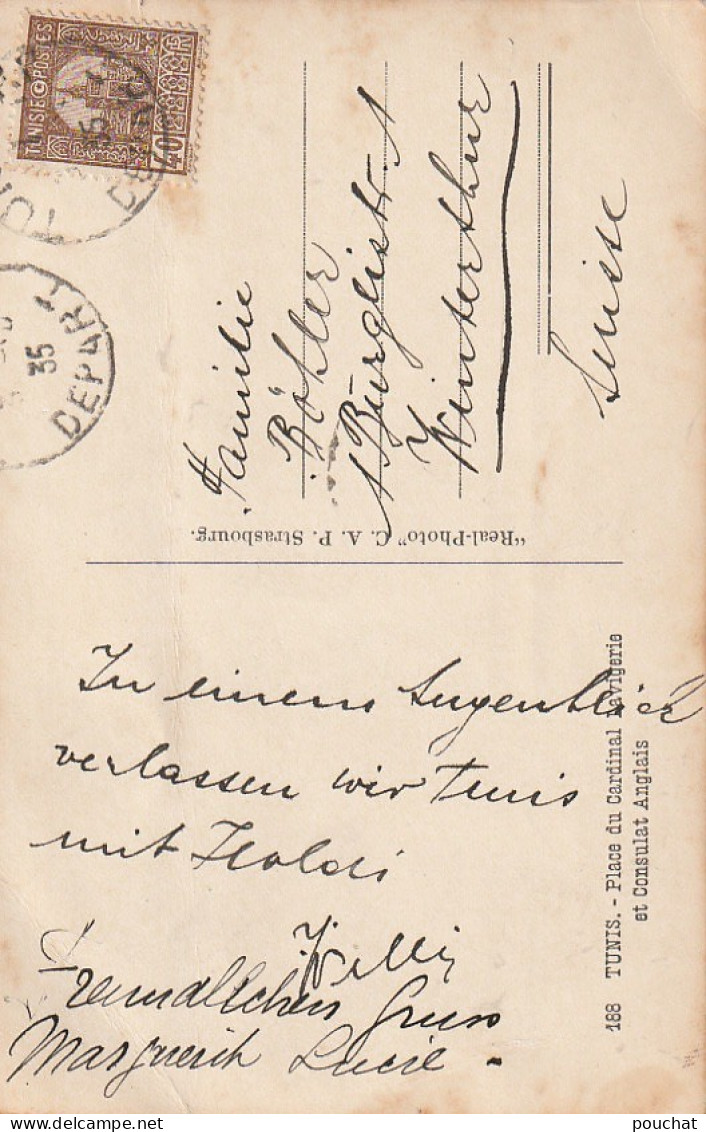 TUNISIE POSTES
40
DEPART
35
DEPART
Familie
Böhler
Bürglistr. 1
Winterthur
Suisse
"Real-Photo" C. A. P. Strasbourg.
In einem Augenblick
verlassen wir Tunis
mit
Willy
Freundlichen Gruss
Marguerith Lucie
188 TUNIS. - Place du Cardinal Lavigerie
et Consulat Anglais
pouchat